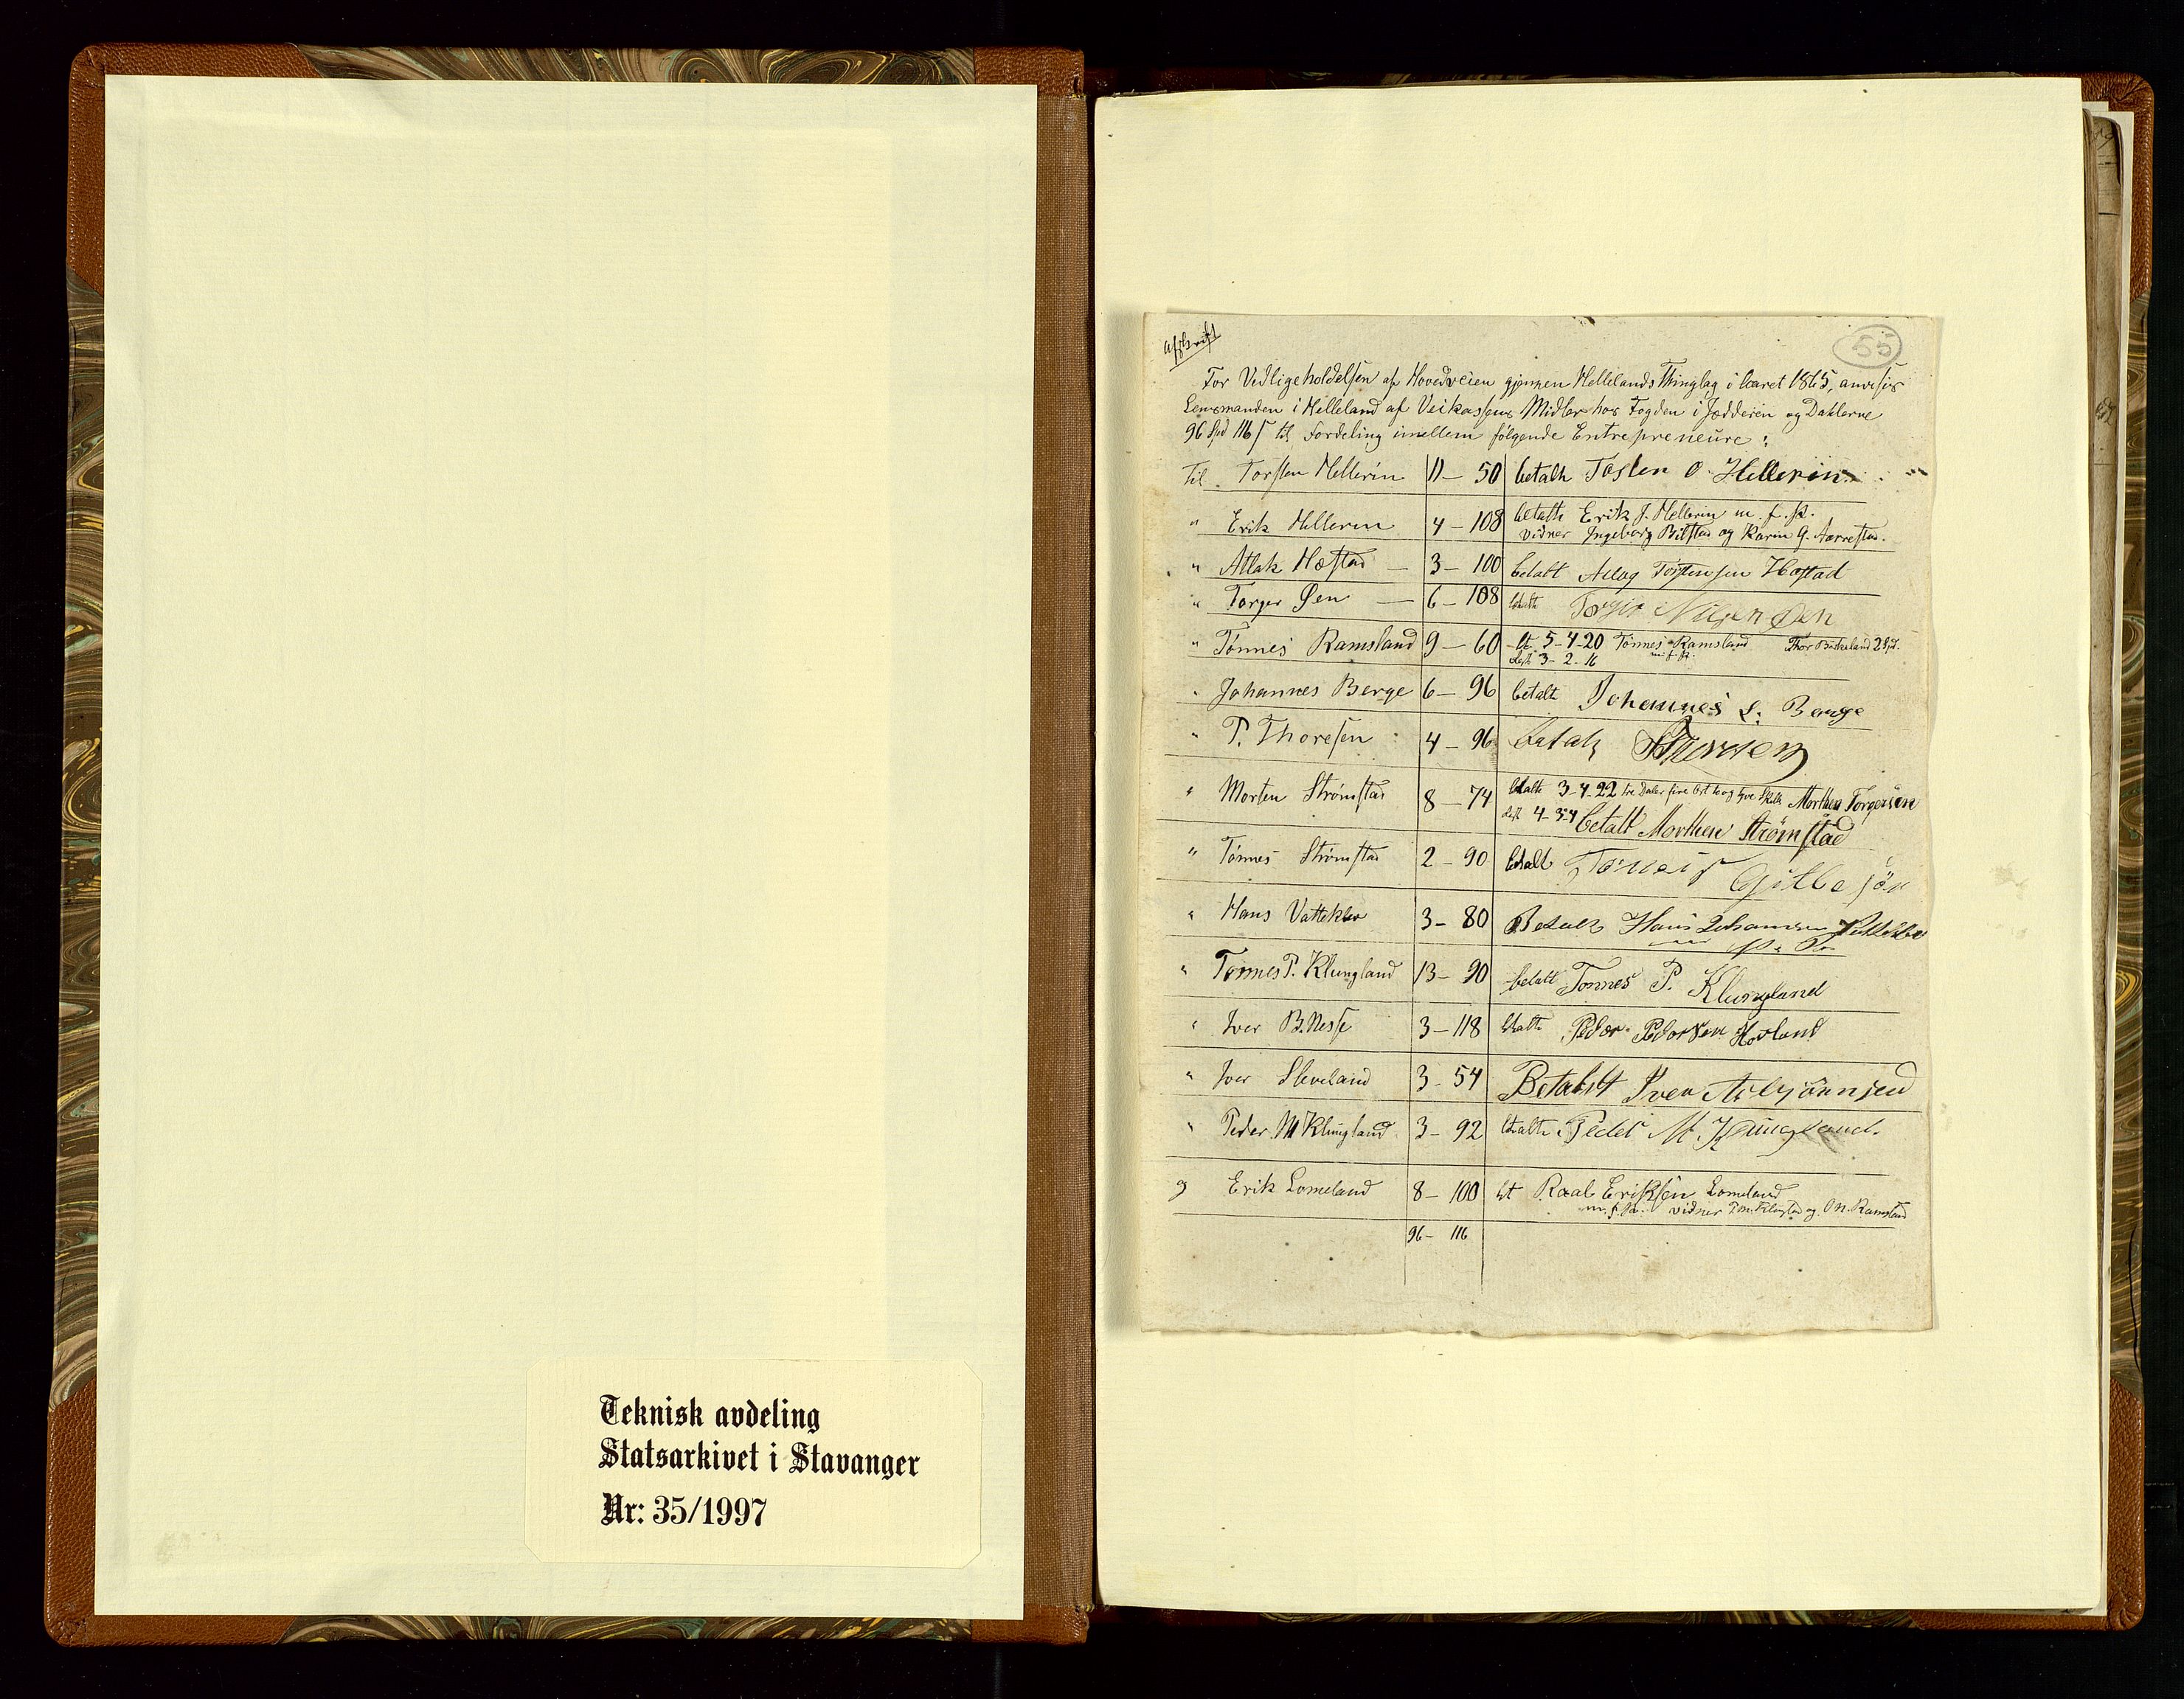 Teknisk avdeling
Statsarkivet i Stavanger
Nr: 35/1997
Afskrift
55
For Vedligeholdelsen af Hovedveien gjennem Hellelands Thinglag i Aaret 1865, anvises
Lensmanden i Helleland af Veikassens Midler hos Fogden i Jædderen og Dalerne
96 Spd 116 s til Fordeling imellem følgende Entrepreneure:
Til Torsten Hellerin 11 - 50 betalt Tosten O. Hellerin
" Erik Helleren 4 - 108 betalt Erik J. Hellerin m. f. P.
vidner Ingeborg Bilstad og Karin G. Aarrestad.
" Atlak Hæstad - 3 - 100 betalt Aslag Torstensen Hæstad
" Torger Øen - 6 - 108 betalt Torger Nilsen Øen
" Tønnes Ramsland 9 - 60 bt. 5-4-20 Tønnes Ramsland Thor Birkeland 2 Spd.
dst 3-2-16 m. f. P.
" Johannes Berge 6 - 96 betalt Johannes L. Berge
" P. Thoresen 4 - 96 betalt PThoresen
" Morten Strømstad 8 - 74 betalt 3-4-22 tre Daler fire Ort to og tyve Skill Morthen Torgersen
dst 4-3-4 betalt Morthen Strømstad
" Tønnes Strømstad 2 - 90 betalt Tønnes
" Hans Vatteklev 3 - 80 Betalt Hans Johannesen Vatteklev
" Tønnes P. Klungland 13 - 90 betalt Tonnes P. Klungland
" Iver B. Nesse 3 - 118 betalt Peder Pedersen Hovland
" Iver Sleveland 3 - 54 Betahlt Iver Asbjørnsen
" Peder M Klungland 3 - 92 betalt Peder M. Klungland.
" Erik Lomeland 8 - 100 bt Erikssen Lomeland
m. f. P. vidner og O M. Ramsland
96 - 116